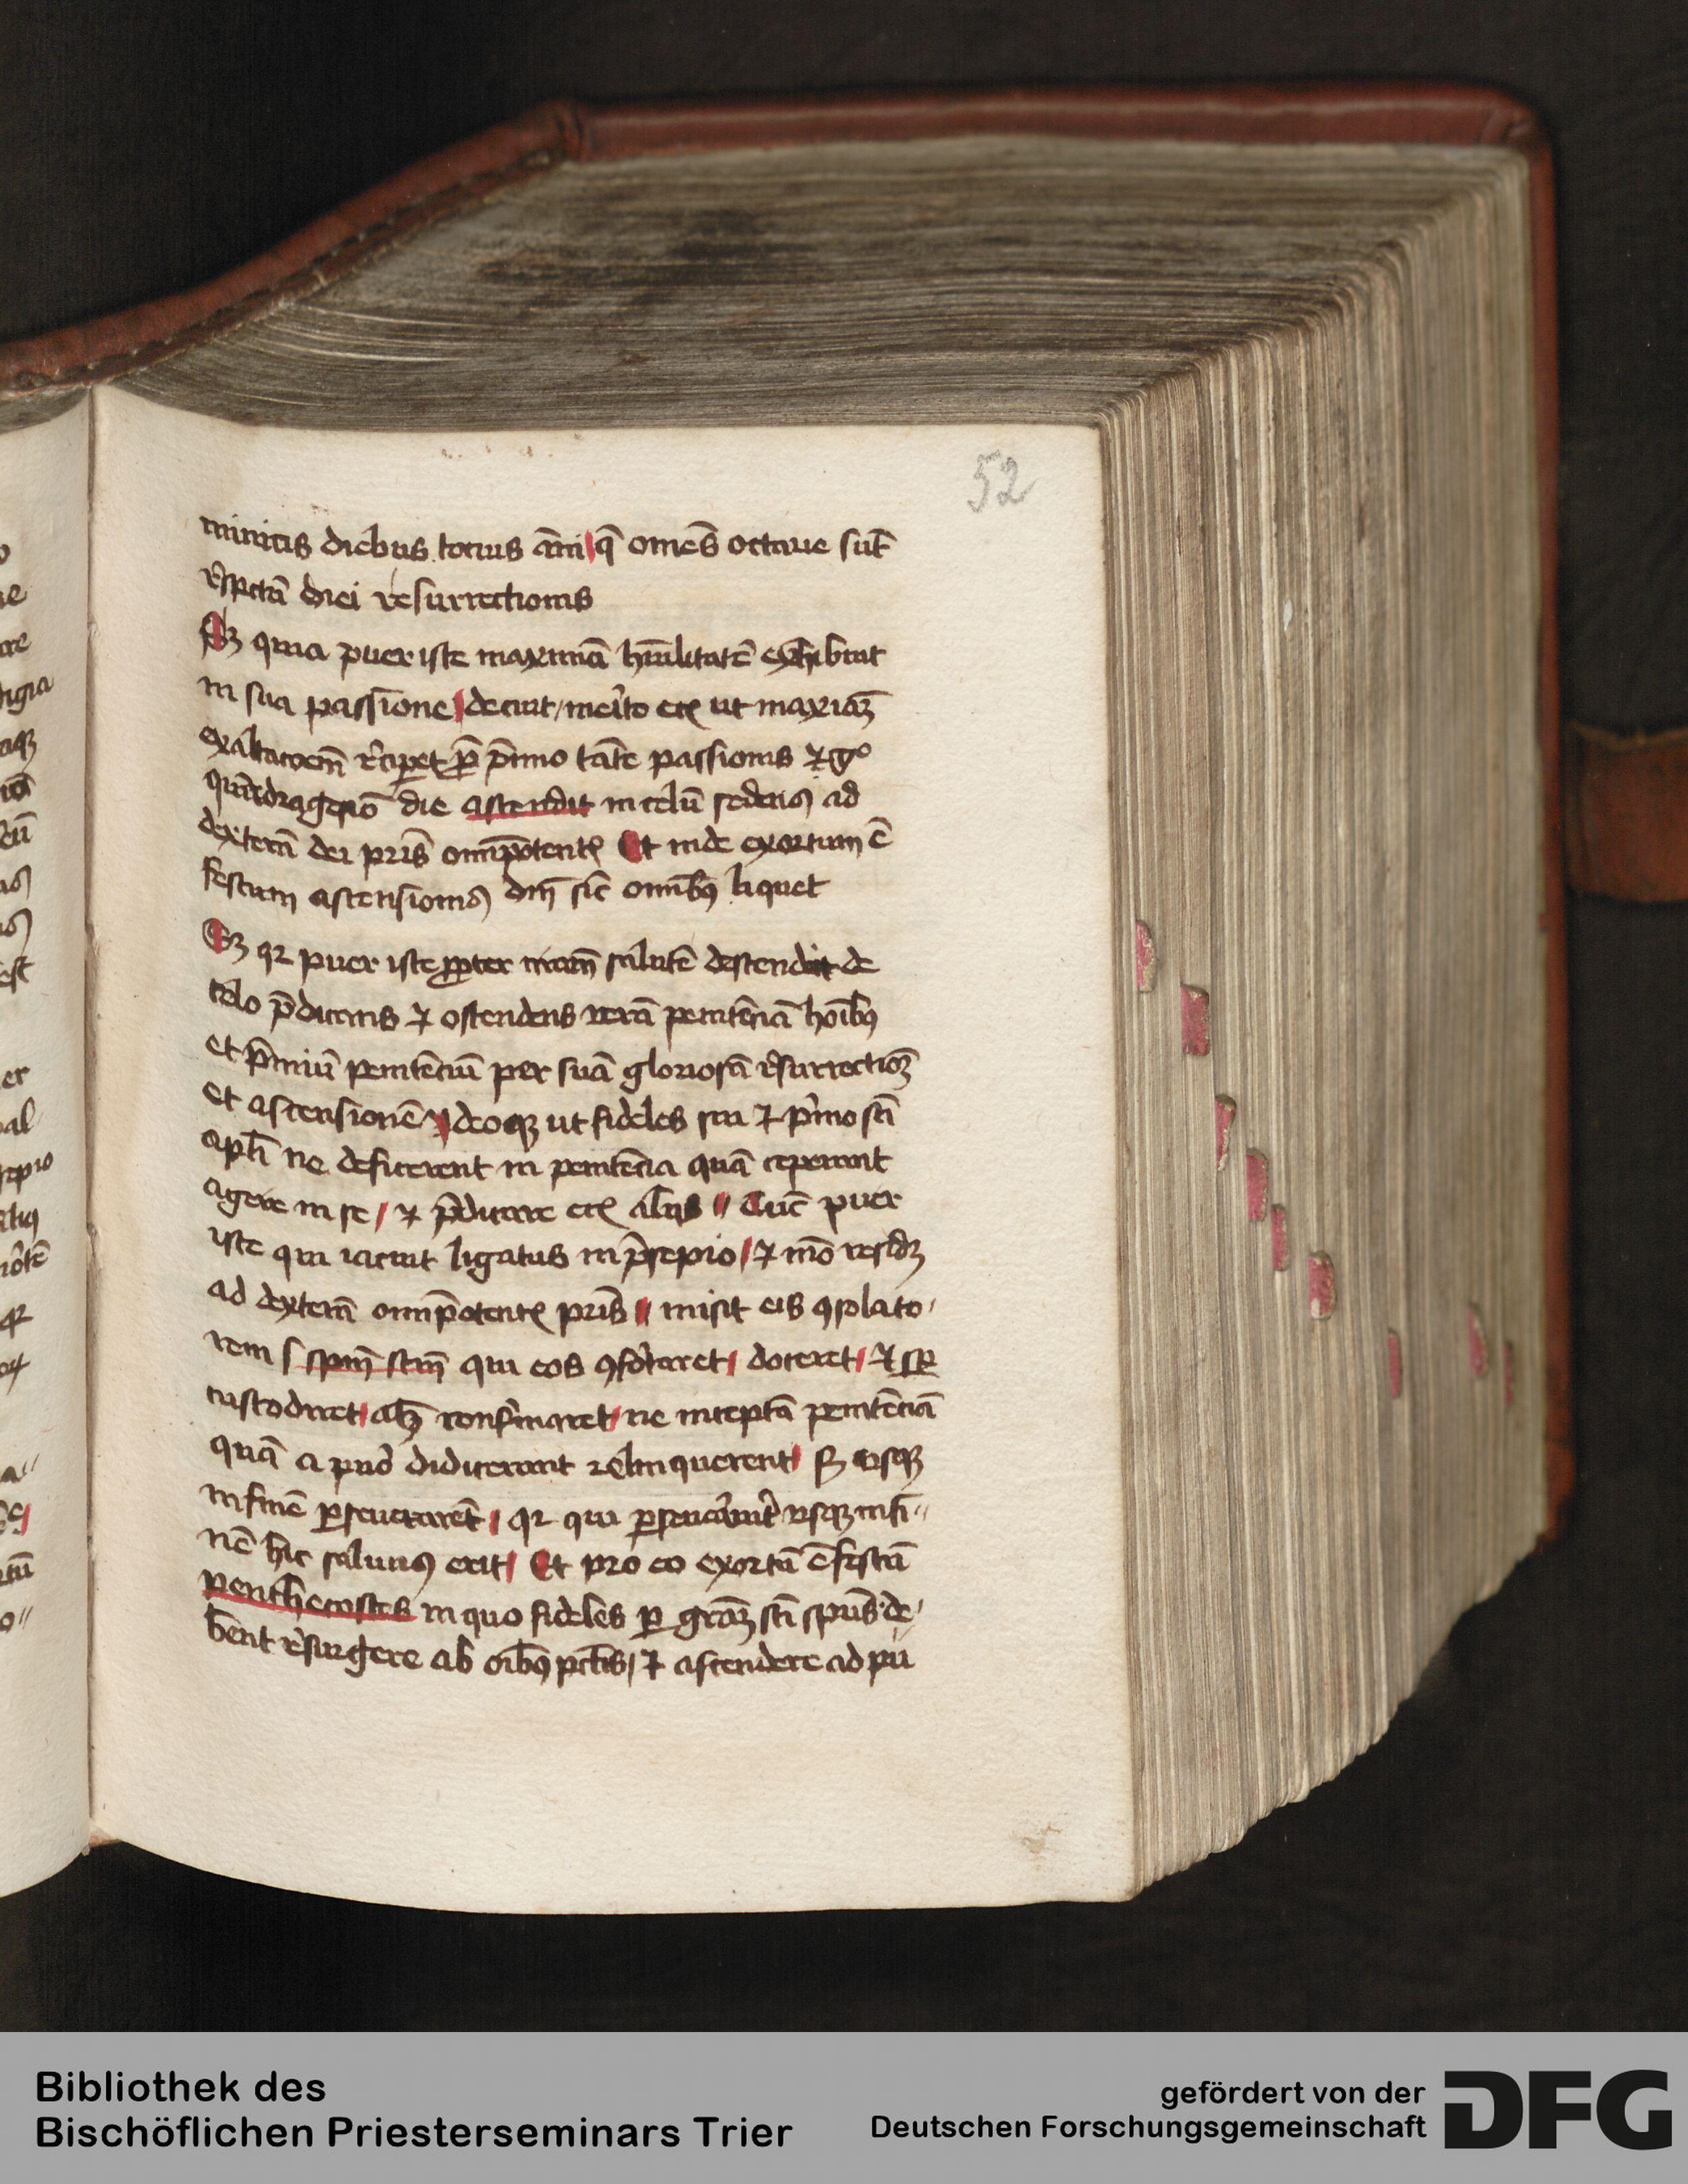 52
minicis diebus totius ãni q̃ omẽs octaue sũt
respctũ diei resurrectionis
Sz quia puer iste maximã hũilitatẽ exhibuit
in sua passione decuit meito etꝭ ut maxiãz
exaltacoẽm recipet p̃ p̃mio tãte passionis
Quadragesiõ die ascendit in celũ sedens ad
dexterã dei pris̃ omp̃otentꝭ Et inde exortum ẽ
festum ascensionis dñi sic̃ omibꝫ liquet
Sz qꝛ puer iste ꝓpter nrãm salutẽ descendit de
celo p̃dicans ⁊ ostendens verã penitẽciã hoĩbꝫ
et p̃miũ penitẽciũ per suã gloriosã resurrectiõꝫ
et ascensionẽ deoqꝫ ut fideles sui ⁊ p̃mo sc̃i
apl̃i ne deficerent in penitẽcia quã ceperant
agere in se ⁊ p̃dicare etꝭ alijs Tũc puer
iste qui iacuit ligatus in p̃sepio ⁊ mõ residꝫ
ad dexterã omp̃otentꝭ pris̃ misit eis ꝯsolato
rem s spm̃ scm̃ qui eos ꝯfortaret doceret ⁊ sꝑ
custodiret atꝫ confirmaret ne inceptã penitẽciã
quã a puero didicerant relinquerent sꝫ usqꝫ
in finẽ ꝑseuerarẽt qꝛ qui ꝑseuerauit usqꝫ in fi
nẽ hic saluus erit Et pro eo exortũ ẽ festũ
penthecostes in quo fideles ꝑ grãꝫ sc̃i spũs de
bent resurgere ab oĩbꝫ pctĩs ⁊ ascendere ad pu
Bibliothek des
Bischöflichen Priesterseminars Trier
gefördert von der
Deutschen Forschungsgemeinschaft
DFG